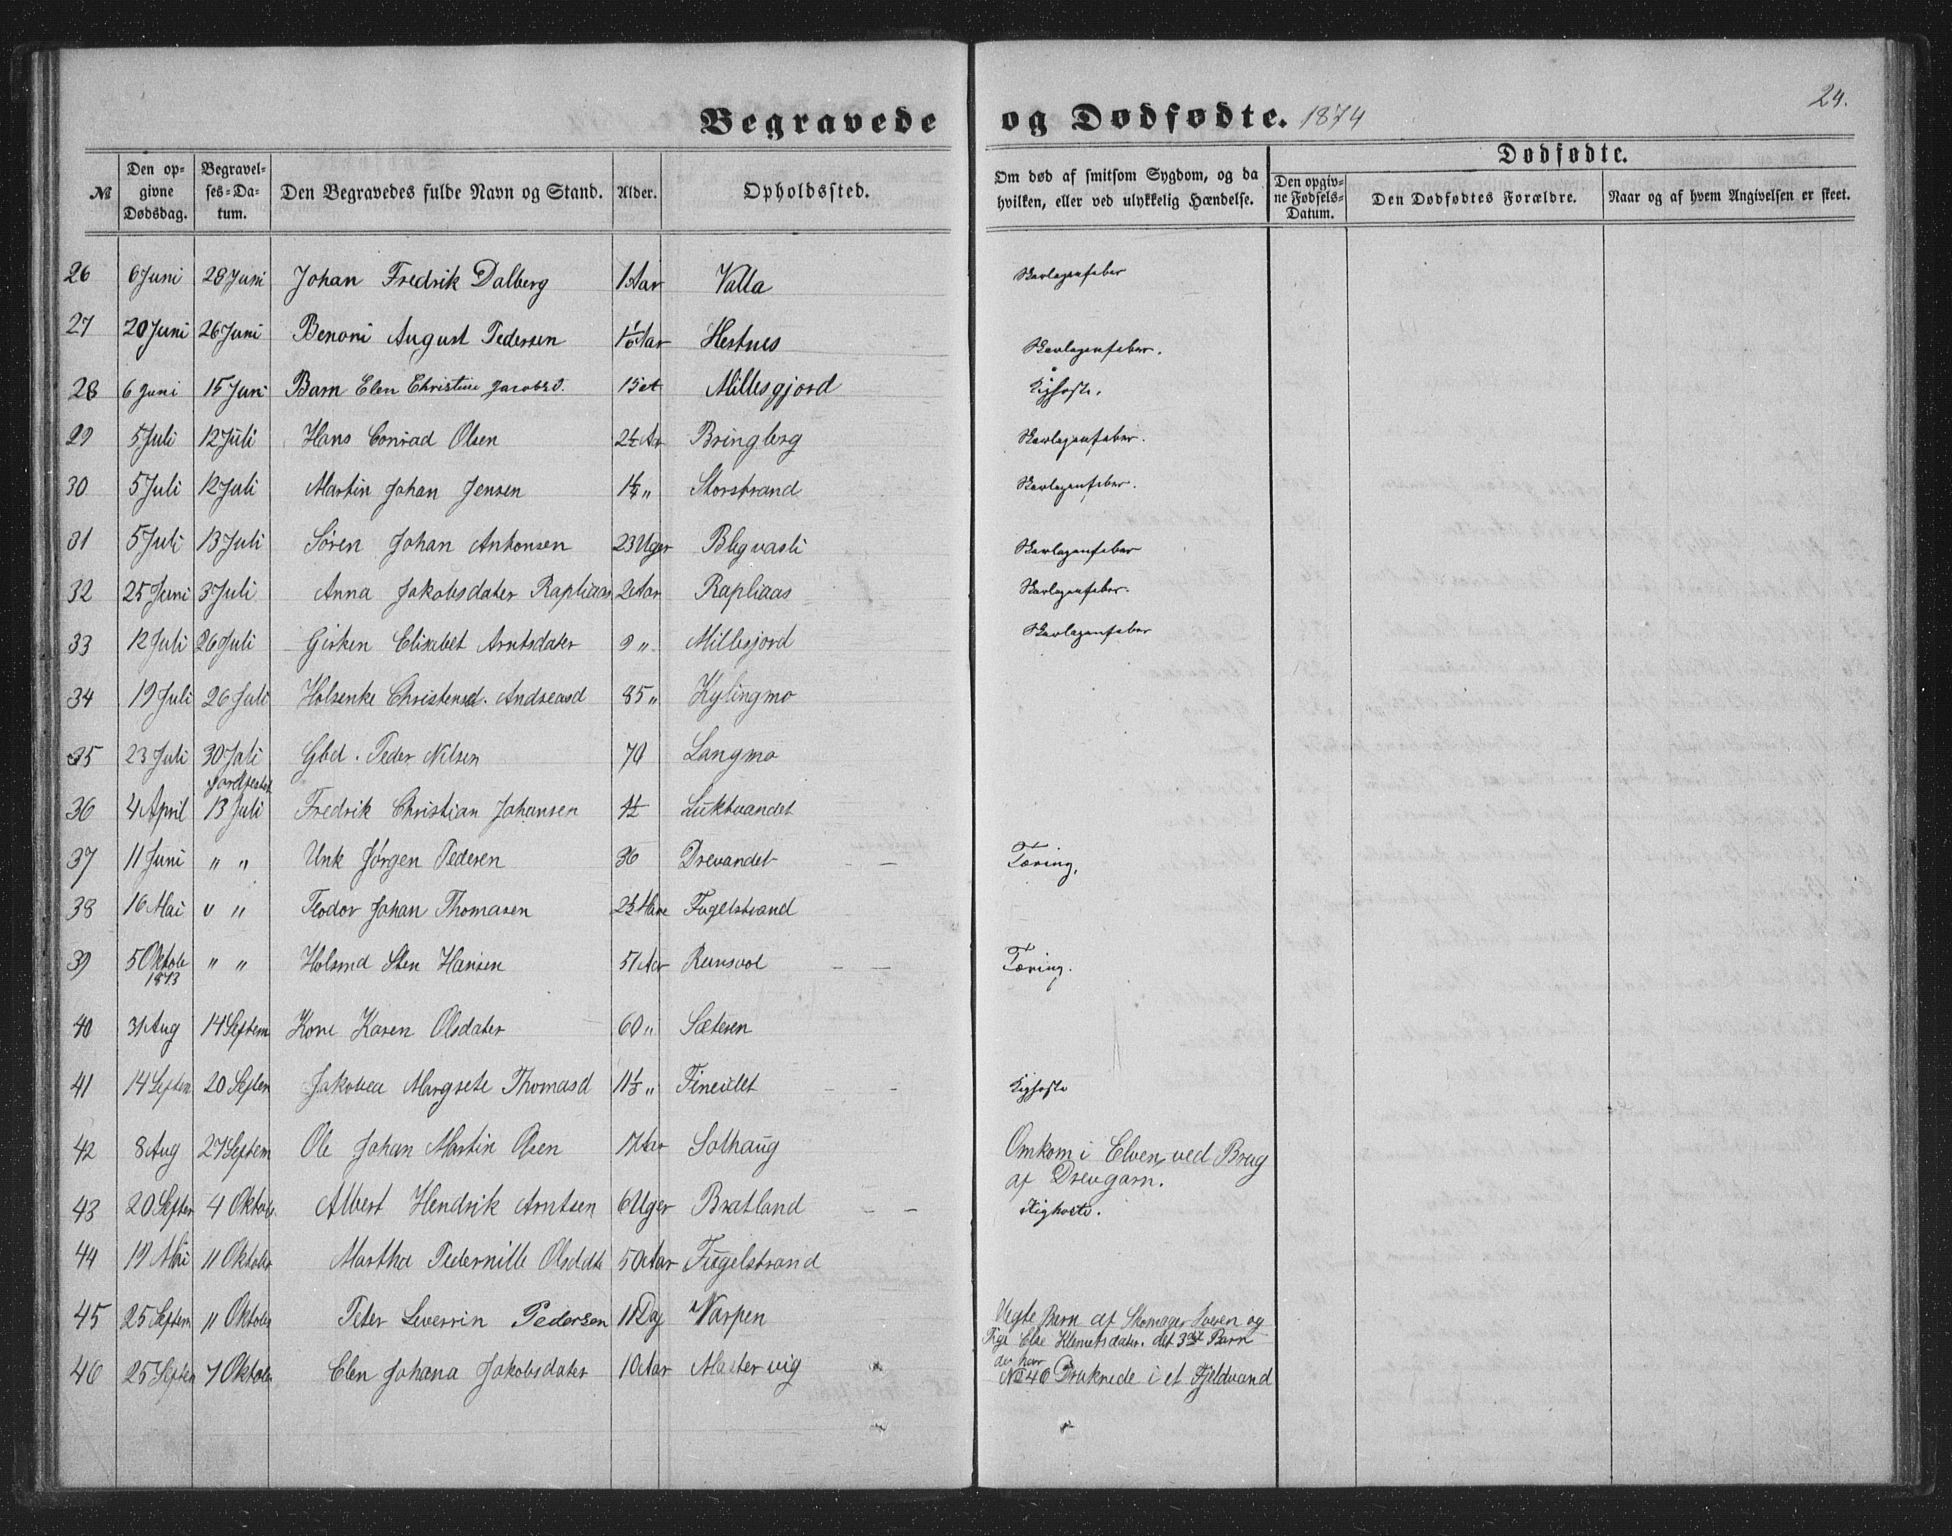 24.
Begravede og Dødfødte. 1874
№ Den opgivne Dødsdag. Begravelses-Datum. Den Begravedes fulde Navn og Stand. Alder. Opholdssted. Om død af smitsom Sygdom, og da hvilken, eller ved ulykkelig Hændelse. Dødfødte. Den opgivne Fødsels-Datum. Den Dødfødtes Forældre. Naar og af hvem Angivelsen er skeet.
26 6 Juni 28 Juni Johan Fredrik Dalberg 1 Aar Valla Skarlagensfeber
27 20 Juni 26 Juni Benoni August Pedersen Aar Hestnes Skarlagensfeber.
28 6 Juni 15 Juni Barn Elen Christine Jacobsd. Millesgjord Kighoste.
29 5 Juli 12 Juli Hans Conrad Olsen 2½ Ar Bringberg Skarlagensfeber.
30 5 Juli 12 Juli Martin Johan Jensen 1¼ " Storstrand Skarlagensfeber.
31 5 Juli 13 Juli Søren Johan Antonsen 23 Uger Blegvasli Skarlagensfeber
32 25 Juni 3 Juli Anna Jakobsdater Rapliaas 2 Aar Rapliaas Skarlagensfeber.
33 12 Juli 26 Juli Girken Elisabet Arntsdater 9 " Millesjord Skarlagensfeber
34 19 Juli 26 Juli Christensd. Andreasd 85 " Kylingmo
35 23 Juli 30 Juli Gbd. Peder Nilsen 70 Langmo
Jordfestet
36 4 April 13 Juli Fredrik Christian Johansen ½ Luktvandet
37 11 Juni " " Unk Jørgen Pedersen 36 Drevandet — — Tæring.
38 16 Mai " " Teodor Johan Thomasen 2½ Fugelstrand
39 5 Oktob " " Holsmd Sten Hansen 51 Aar — — Tæring.
1873
40 31 Aug 14 Septem Kone Karen Olsdater 60 " Sæteren
41 14 Septem 20 Septem Jakobea Margrete Thomasd 11½ " Fineidet - - Kighoste
42 8 Aug 27 Septem Ole Johan Martin Olsen 17 Aar Solhaug Omkom i Elven, ved Brug
af Drevgarn.
43 20 Septem 4 Oktob. Albert Hendrik Arntsen 6 Uger Bratland — — Kighoste.
44 19 Mai 11 Oktober Martha Pedernille Olsddt 50 Aar Fugelstrand
45 25 Septem 11 Oktober Peter Severrin Pedersen 11 Dag Varpen Uegte Barn af Skomager og
Pige Else Klemetsdater. det 3die Barn
de har
46 25 Septem 7 Oktober Elen Johana Jakobsdater 10 Aar Mastervig No 46 Druknede i et Fjeldvand